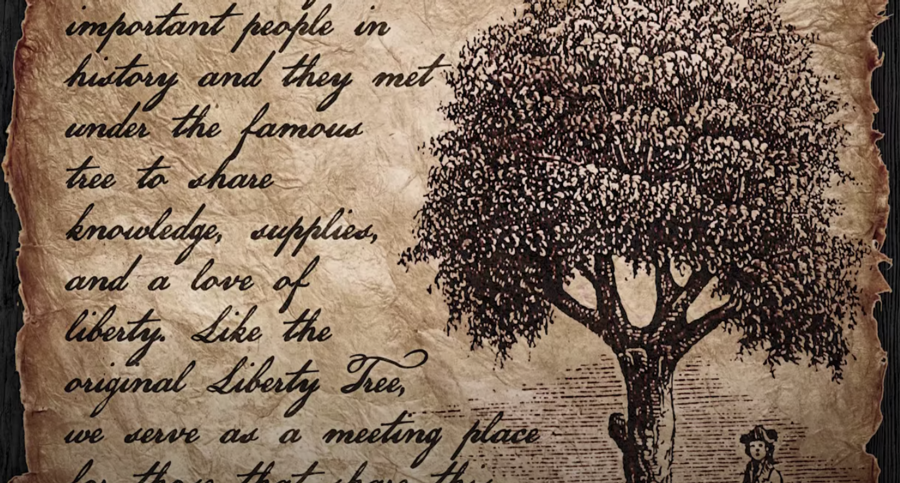 important people in
history and they met
under the famous
tree to share
knowledge, supplies,
and a love of
liberty. Like the
original Liberty Tree,
we serve as a meeting place
for those that share this